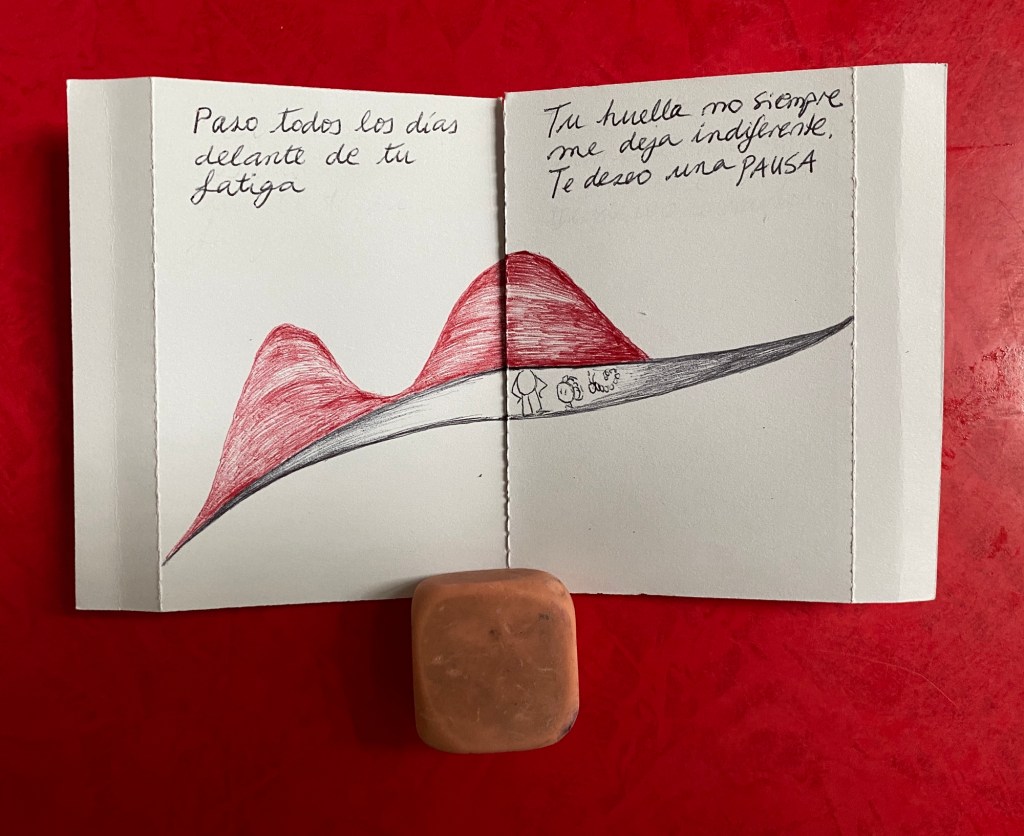 Paso todos los días
delante de tu
fatiga
Tu huella no siempre
me deja indiferente.
Te deseo una PAUSA